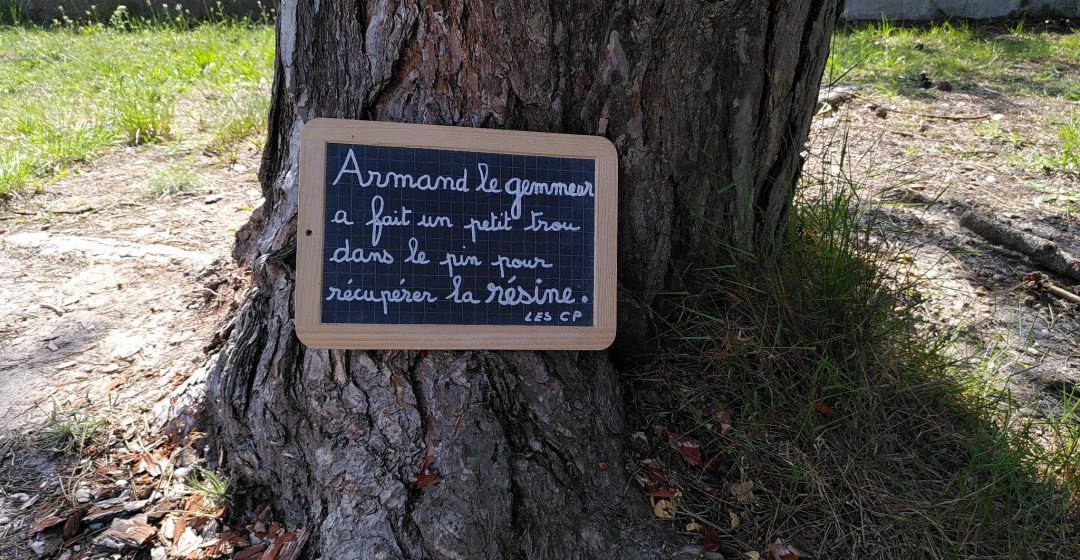 Armand le gemmeur
a fait un petit trou
dans le pin pour
récupérer la résine.
LES CP